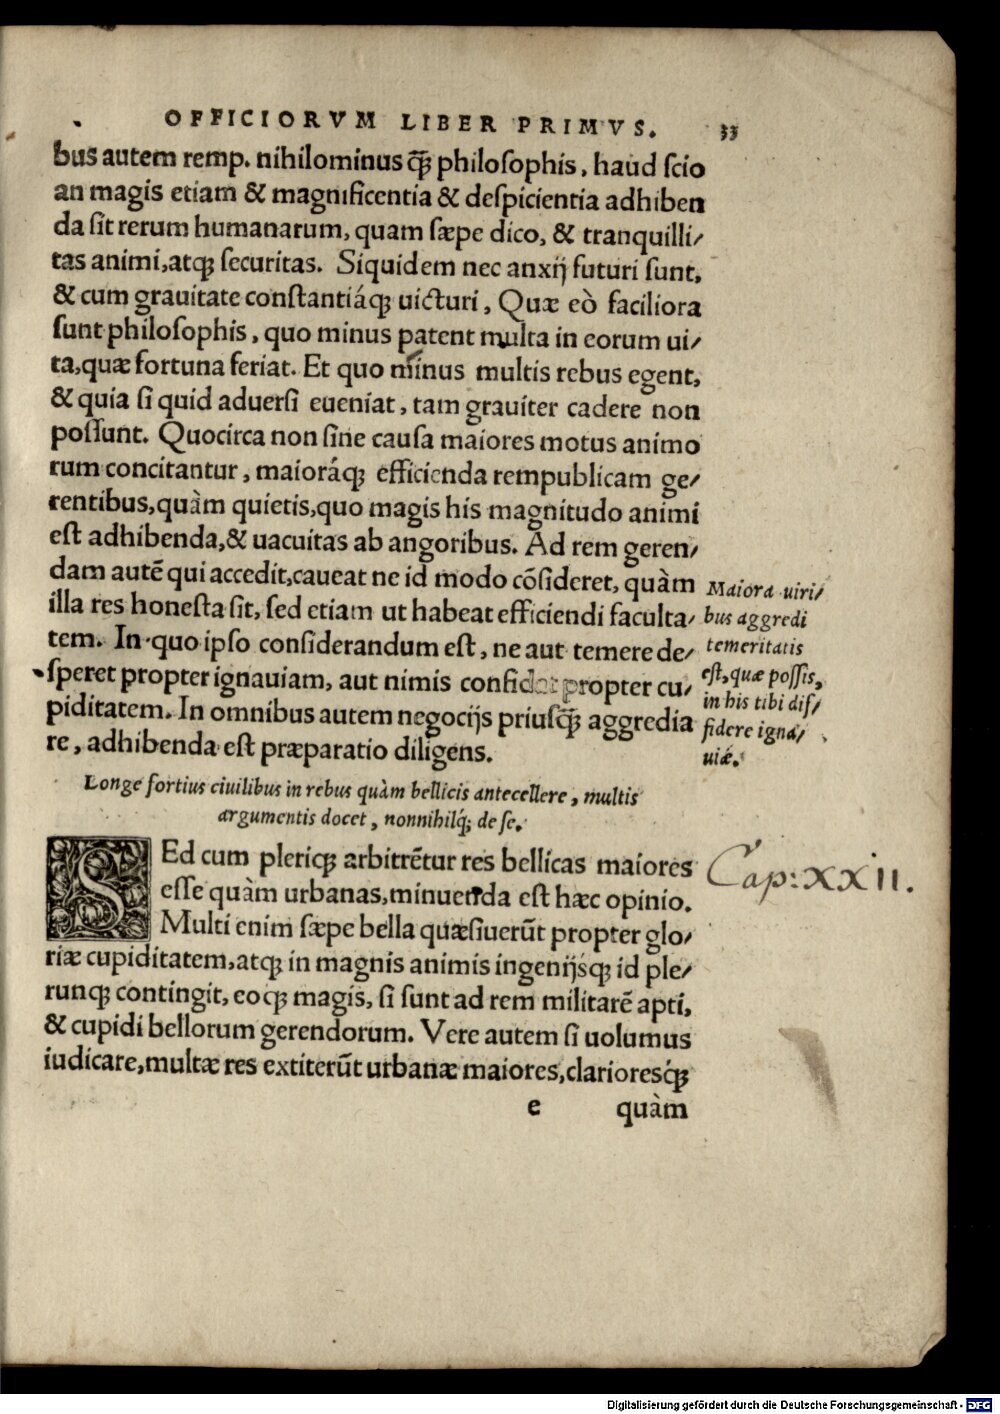 OFFICIORVM LIBER PRIMVS. 33
bus autem remp. nihilominus q̃ꝫ philoſophis, haud ſcio
an magis etiam & magnificentia & deſpicientia adhiben
da ſit rerum humanarum, quam ſæpe dico, & tranquilli/
tas animi, atqꝫ ſecuritas. Siquidem nec anxij futuri ſunt,
& cum grauitate conſtantiáqꝫ uicturi, Quæ eò faciliora
ſunt philoſophis, quo minus patent multa in eorum ui/
ta, quæ fortuna feriat. Et quo minus multis rebus egent,
& quia ſi quid aduerſi eueniat, tam grauiter cadere non
poſſunt. Quocirca non ſine cauſa maiores motus animo
rum concitantur, maioráqꝫ efficienda rempublicam ge/
rentibus, quàm quietis, quo magis his magnitudo animi
eſt adhibenda, & uacuitas ab angoribus. Ad rem geren/
dam autẽ qui accedit, caueat ne id modo cõſideret, quàm
illa res honeſta ſit, ſed etiam ut habeat efficiendi faculta/
tem. In quo ipſo conſiderandum eſt, ne aut temere de/
ſperet propter ignauiam, aut nimis confidat propter cu/
piditatem. In omnibus autem negocijs priuſq̃ꝫ aggredia
re, adhibenda eſt præparatio diligens.
Maiora uiri/
bus aggredi
temeritatis
eſt, quæ poſſis,
in his tibi dif/
fidere igna/
uiæ.
Longe fortius ciuilibus in rebus quàm bellicis antecellere, multis
argumentis docet, nonnihilq́; de ſe.
SEd cum pleriqꝫ arbitrẽtur res bellicas maiores
eſſe quàm urbanas, minuenda eſt hæc opinio.
Multi enim ſæpe bella quæſiuerũt propter glo/
riæ cupiditatem, atqꝫ in magnis animis ingenijsqꝫ id ple/
runqꝫ contingit, eoqꝫ magis, ſi ſunt ad rem militarẽ apti,
& cupidi bellorum gerendorum. Vere autem ſi uolumus
iudicare, multæ res extiterũt urbanæ maiores, clarioresq́ꝫ
e quàm
Cap: XXII.
Digitalisierung gefördert durch die Deutsche Forschungsgemeinschaft - DFG